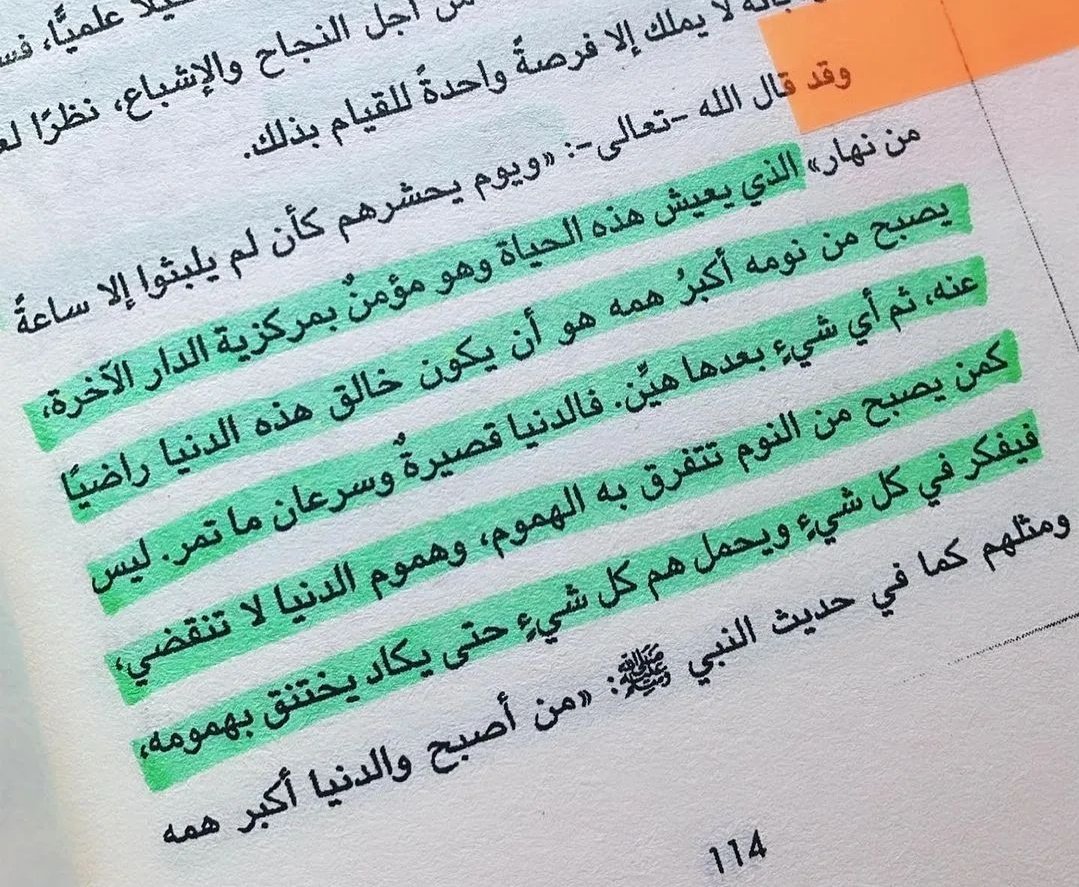 علميًّا،
أجل النجاح والإشباع، نظرًا
لا يملك إلا فرصةً واحدةً للقيام بذلك.
وقد قال الله -تعالى-: «ويوم يحشرهم كأن لم يلبثوا إلا ساعةً
من نهار» الذي يعيش هذه الحياة وهو مؤمنٌ بمركزية الدار الآخرة،
يصبح من نومه أكبرُ همه هو أن يكون خالق هذه الدنيا راضيًا
عنه، ثم أي شيءٍ بعدها هيِّن. فالدنيا قصيرةٌ وسرعان ما تمر. ليس
كمن يصبح من النوم تتفرق به الهموم، وهموم الدنيا لا تنقضي،
فيفكر في كل شيءٍ ويحمل هم كل شيءٍ حتى يكاد يختنق بهمومه،
ومثلهم كما في حديث النبي ﷺ: «من أصبح والدنيا أكبر همه
114